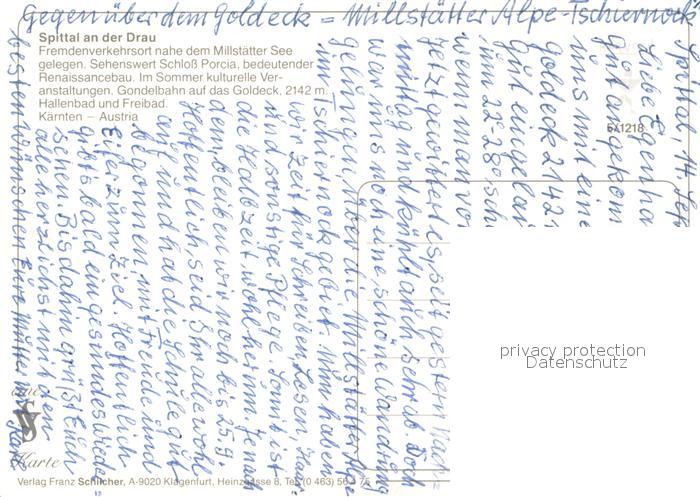 Gegenüber dem Goldeck = Millstätter Alpe-Tschiernock
Spittal an der Drau
Fremdenverkehrsort nahe dem Millstätter See
gelegen. Sehenswert Schloß Porcia, bedeutender
Renaissancebau. Im Sommer kulturelle Ver-
anstaltungen. Gondelbahn auf das Goldeck, 2142 m.
Hallenbad und Freibad.
Kärnten – Austria
671218
Spittal, 14. Sep
Liebe Eigenha
gut angekom
uns mit eine
Goldeck 2142
Gut eingelar
um 22-28° sch
wenn man vo
Jetzt gewittert es, seit gestern Nach=
mittag und kühlt auch sehr ab. Doch
war uns noch eine schöne Wandrung
gelungen, über die Millstätter Alpe
im Tschiernockgebiet. Nun haben
wir Zeit für Schreiben, Lesen, Haar=
und sonstige Pflege. Somit ist
die Halbzeit wohl herum. Je nach
dem bleiben wir noch bis 25.9.
Hoffentlich seid Ihr alle wohl=
auf und habt die Schule gut
begonnen, mit Freude und
Eifer zum Ziel. Hoffentlich
gibts bald ein gesundes Wieder=
sehen. Bis dahin grüßt Euch
alle herzlichst mit den
besten Wünschen Eure Mutter
eine
Karte
Verlag Franz Schilcher, A-9020 Klagenfurt, Heinzgasse 8, Tel. (0 463) 56
privacy protection
Datenschutz